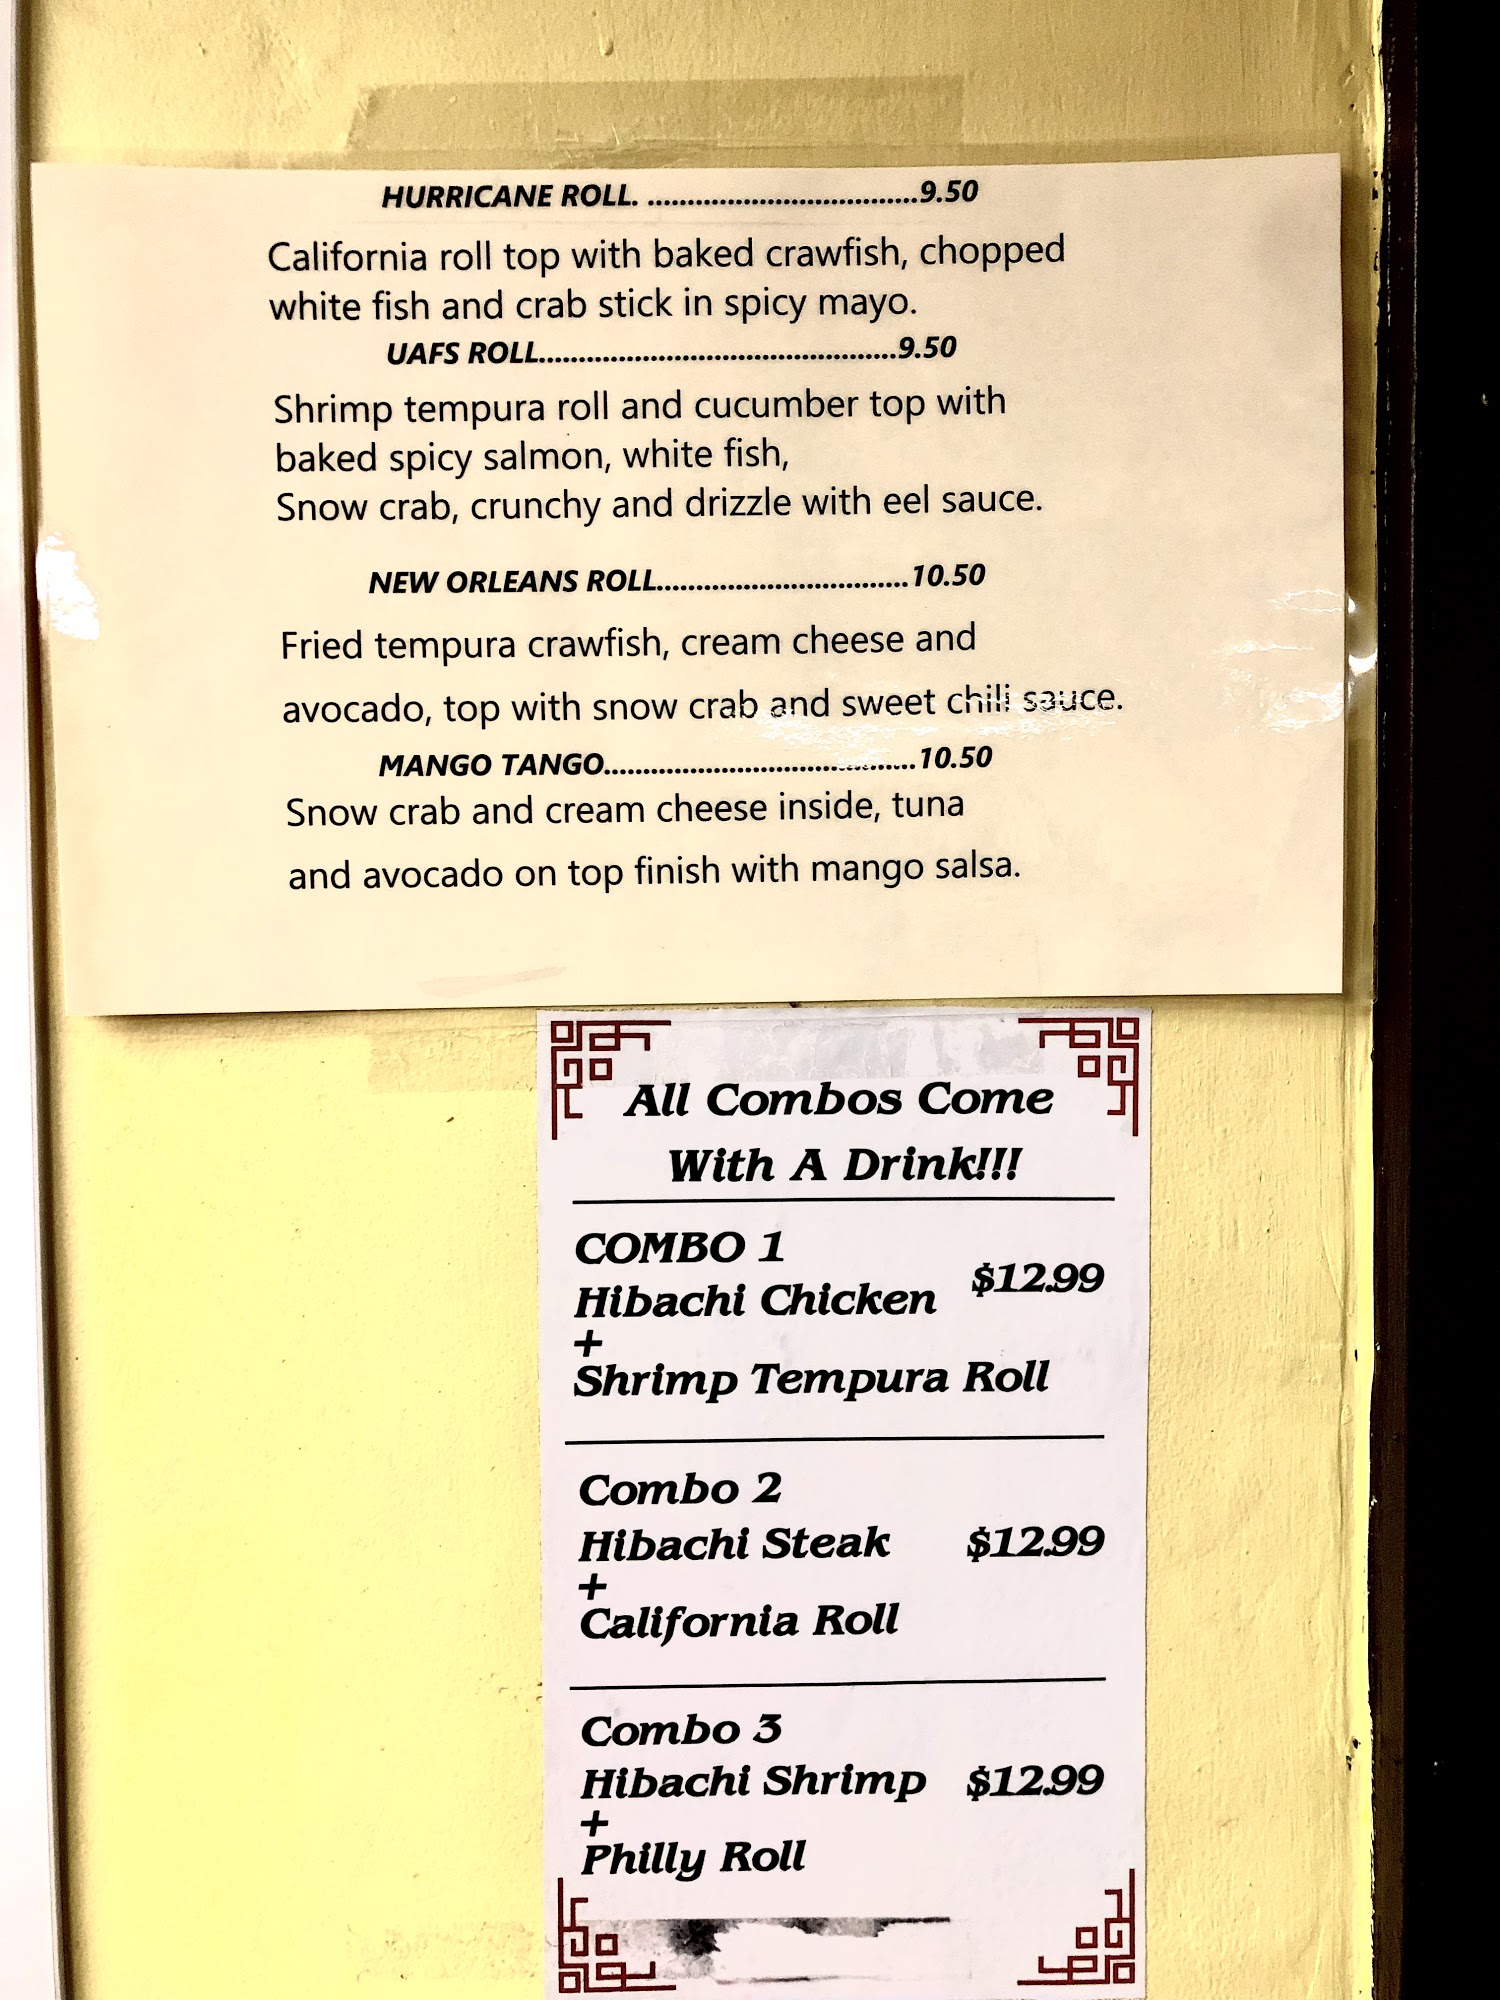 HURRICANE ROLL. ..................................9.50
California roll top with baked crawfish, chopped
white fish and crab stick in spicy mayo.
UAFS ROLL.............................................9.50
Shrimp tempura roll and cucumber top with
baked spicy salmon, white fish,
Snow crab, crunchy and drizzle with eel sauce.
NEW ORLEANS ROLL................................10.50
Fried tempura crawfish, cream cheese and
avocado, top with snow crab and sweet chili sauce.
MANGO TANGO.......................................10.50
Snow crab and cream cheese inside, tuna
and avocado on top finish with mango salsa.
All Combos Come
With A Drink!!!
COMBO 1
Hibachi Chicken $12.99
+
Shrimp Tempura Roll
Combo 2
Hibachi Steak $12.99
+
California Roll
Combo 3
Hibachi Shrimp $12.99
+
Philly Roll